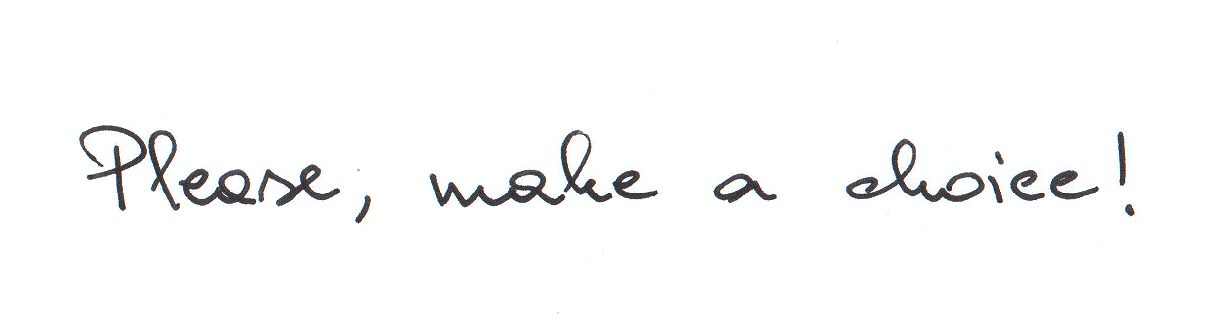 Please, make a choice!